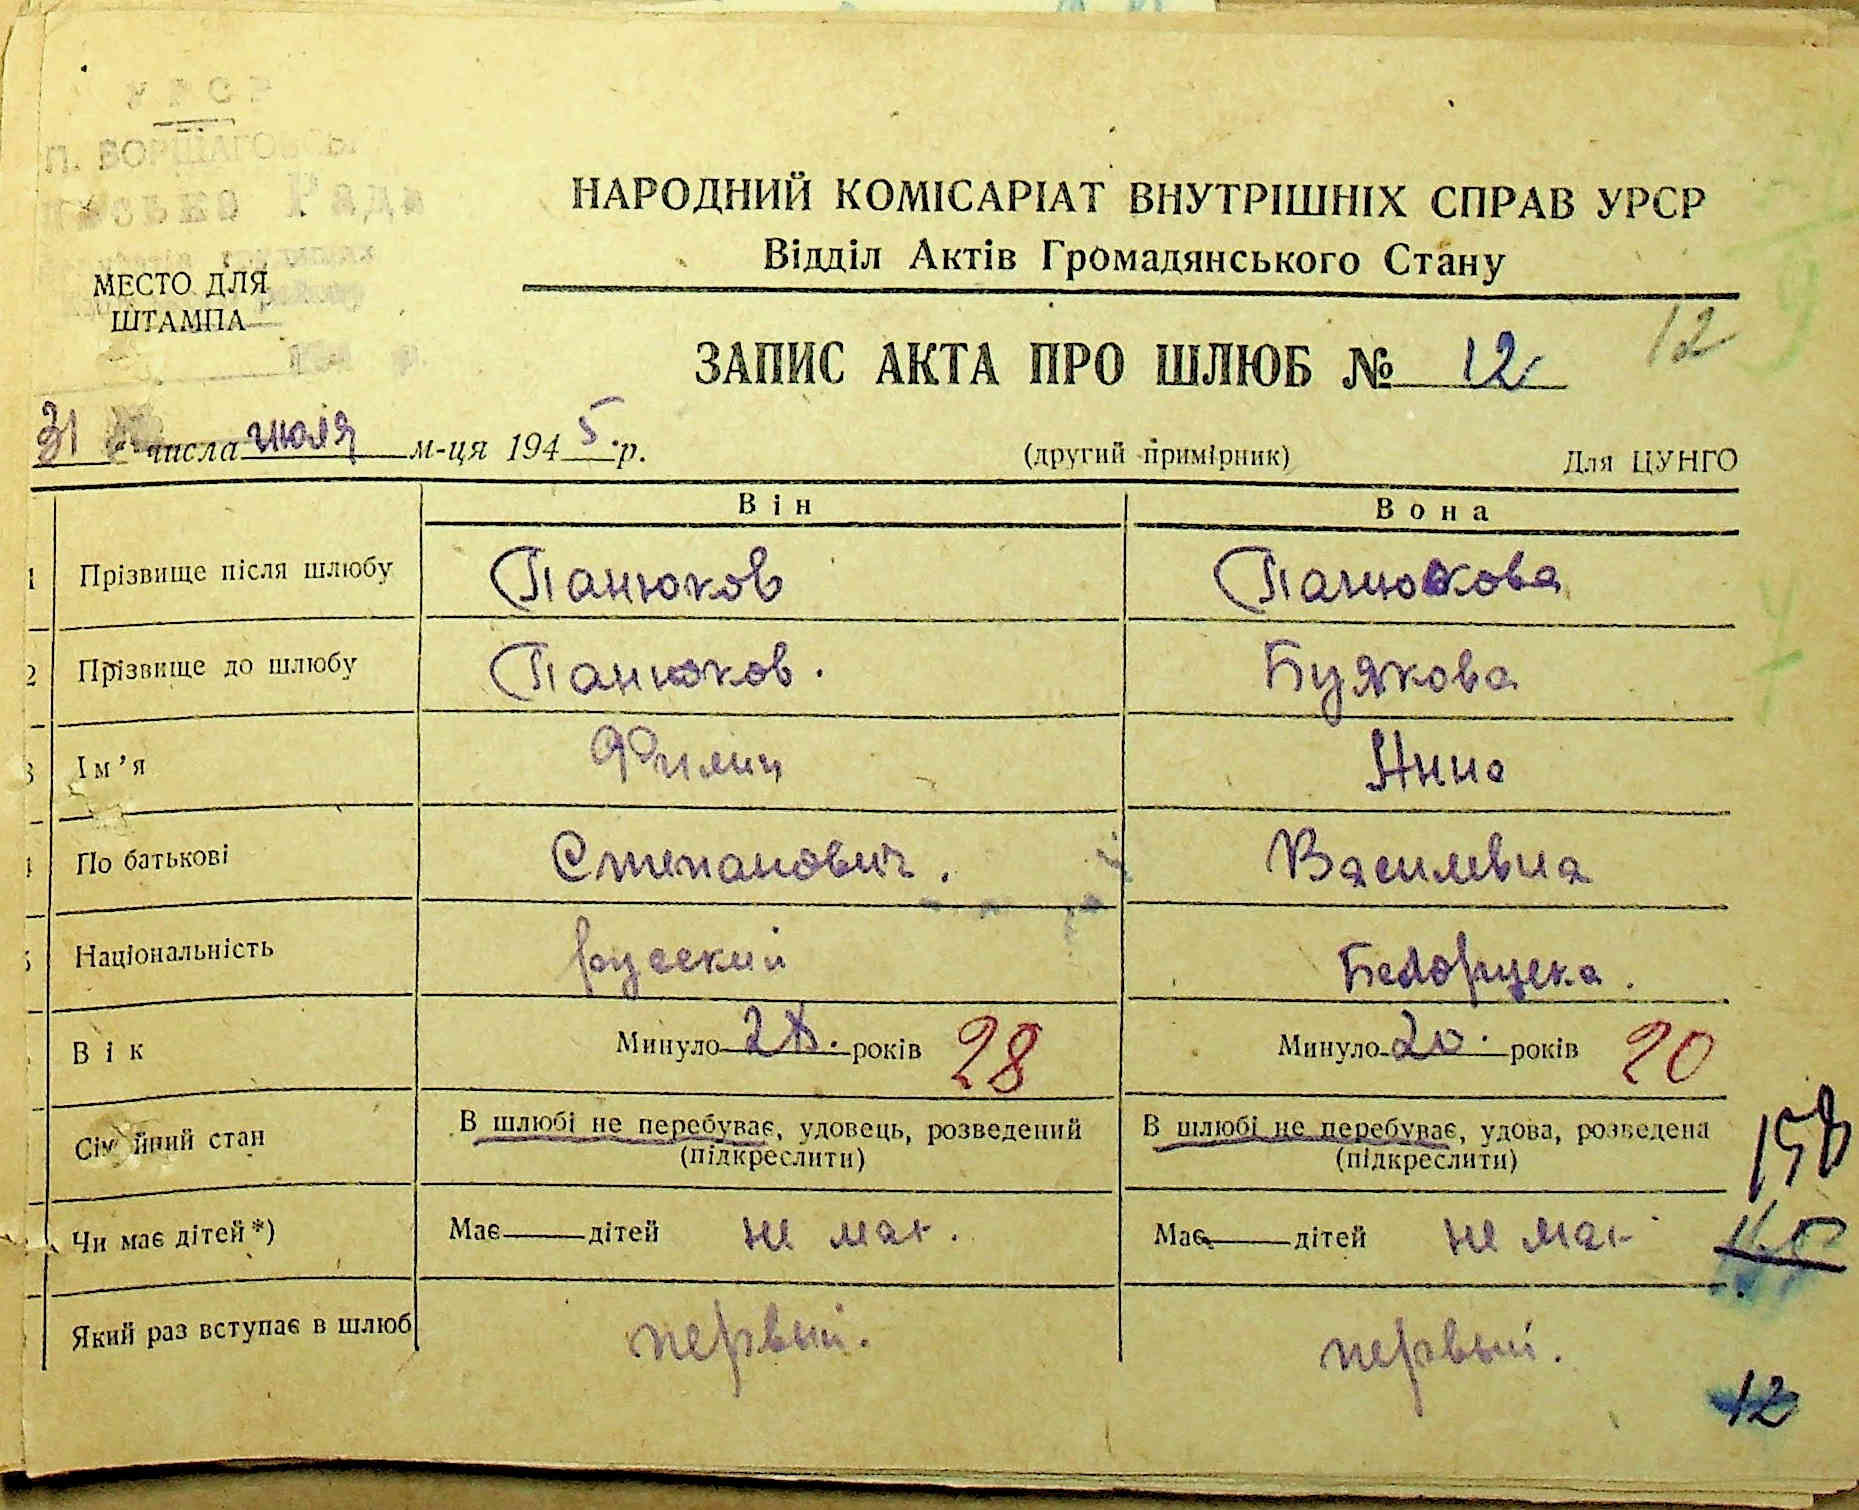 УРСР
П. БОРЩАГОВСЬК
Рада
НАРОДНИЙ КОМІСАРІАТ ВНУТРІШНІХ СПРАВ УРСР
Відділ Актів Громадянського Стану
МЕСТО ДЛЯ
ШТАМПА
ЗАПИС АКТА ПРО ШЛЮБ № 12 12
31 числа июля м-ця 1945 р. (другий примірник) Для ЦУНГО
Він Вона
1 Прізвище після шлюбу Панюков Панюкова
2 Прізвище до шлюбу Панюков. Буякова
3 Ім'я Филип Анна
4 По батькові Степанович. Василевна
5 Національність русский Белоруска.
Вік Минуло 28. років 28 Минуло 20. років 20
Сімейний стан В шлюбі не перебуває, удовець, розведений В шлюбі не перебуває, удова, розведена
(підкреслити) (підкреслити)
Чи має дітей *) Має дітей не має. Має дітей не має
Який раз вступає в шлюб первый. первый.
12